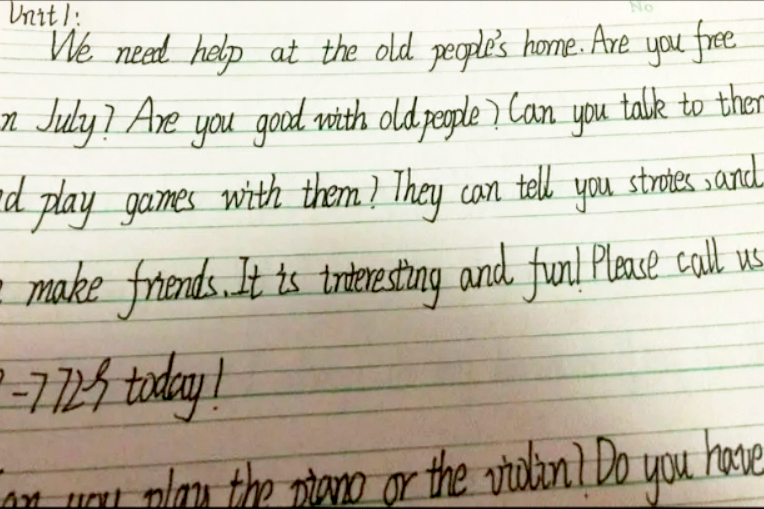 No
Unit 1:
We need help at the old people's home. Are you free
n July? Are you good with old people? Can you talk to then
d play games with them? They can tell you stroies, and
make friends. It is interesting and fun! Please call us
-7725 today!
an you play the piano or the violin? Do you have